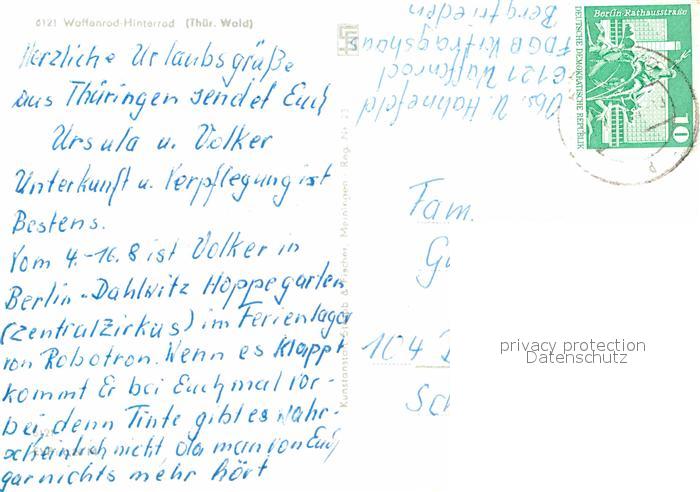 6121 Waffenrod-Hinterrod (Thür. Wald)
Herzliche Urlaubsgrüße
aus Thüringen sendet Euch
Ursula u. Volker
Unterkunft u. Verpflegung ist
Bestens.
Vom 4.-16.8 ist Volker in
Berlin-Dahlwitz Hoppegarten
(Zentralzirkus) im Ferienlager
von Robotron. Wenn es klappt
kommt Er bei Euch mal vor-
bei, denn Tinte gibt es wahr-
scheinlich nicht, da man von Euch
gar nichts mehr hört
Abs. V. Hahnefeld
6121 Waffenrod
FDGB
Bergfrieden
Berlin Rathausstraße
DEUTSCHE DEMOKRATISCHE REPUBLIK
10
Fam.
104
privacy protection
Datenschutz